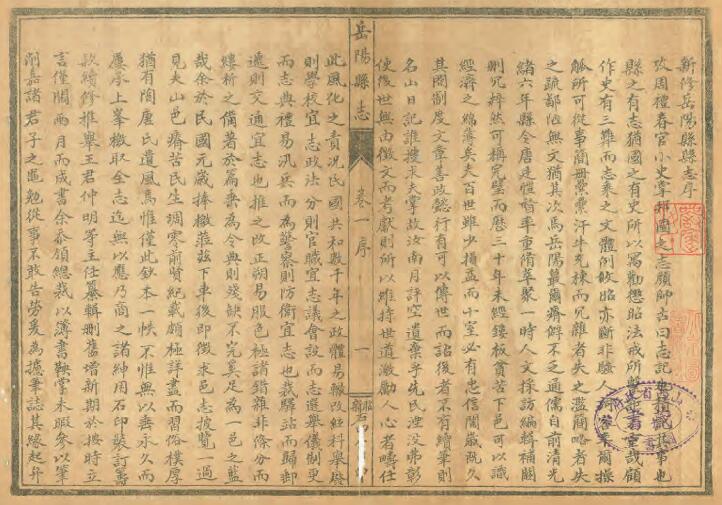 新修岳陽縣縣志序
攷周禮春官小史掌邦國之志顏師古曰志記也積記其事也
縣之有志猶國之有史所以寓勸懲昭法戒所重哉顧
作史有三難而志乘之文體例攸昭亦斷非爾操
觚所可從事簡册縈縈汗牛充棟而冗雜者失之濫簡略者失
之疏鄙俚無文猶其次焉岳陽蕞爾瘠鮮不乏通儒自前清光
緒六年縣令唐年重脩萃眾一時人文採訪編輯補闕
刪冗粹然可稱完璧而歷三十年未經鏤板貧苦下邑可以識
經濟之綿薄矣夫百世雖少損益而十室必有忠信閱歲旣久
其閒制度文章善政懿行有可以傳世而詒後者不有續筆則
名山日記誰搜求夫掌故汝南月評空遺棄乎先民湮没弗彰
使後世無由徵文而考獻則所以維持世道激勵人心者疇任
岳陽縣志 卷一 序 一
此風化之責況民國共和數千年之政體易轍改絃科舉廢
則學校宜志政法分則官職宜志議會設而志選舉儀制更
而志典禮易汛兵而為警察則防衛宜志也裁驛站而歸郵
遞則交通宜志也推之改正朔易服色極諸錯雜非條分而
縷析之備著於篇乘為令典則殘缺不完奚足為一邑之藍
哉余於民國元歲捧檄蒞茲下車後即徵求邑志披覽一過
見夫山邑瘠苦民生凋零前賢紀載頗極詳盡而習俗樸厚
猶有陶唐氏遺風焉惟僅此鈔本一帙不惟無以垂永久而
屢承上峯檄取全志迄無以應乃商之諸紳用石印裝訂籌
欵續修推舉王君仲明等主任纂輯刪舊增新期於按時立
言僅閱兩月而成書余忝領總裁以簿書鞅掌未暇參以筆
削嘉諸君子之黽勉從事不敢告勞爰為援筆誌其緣起弁